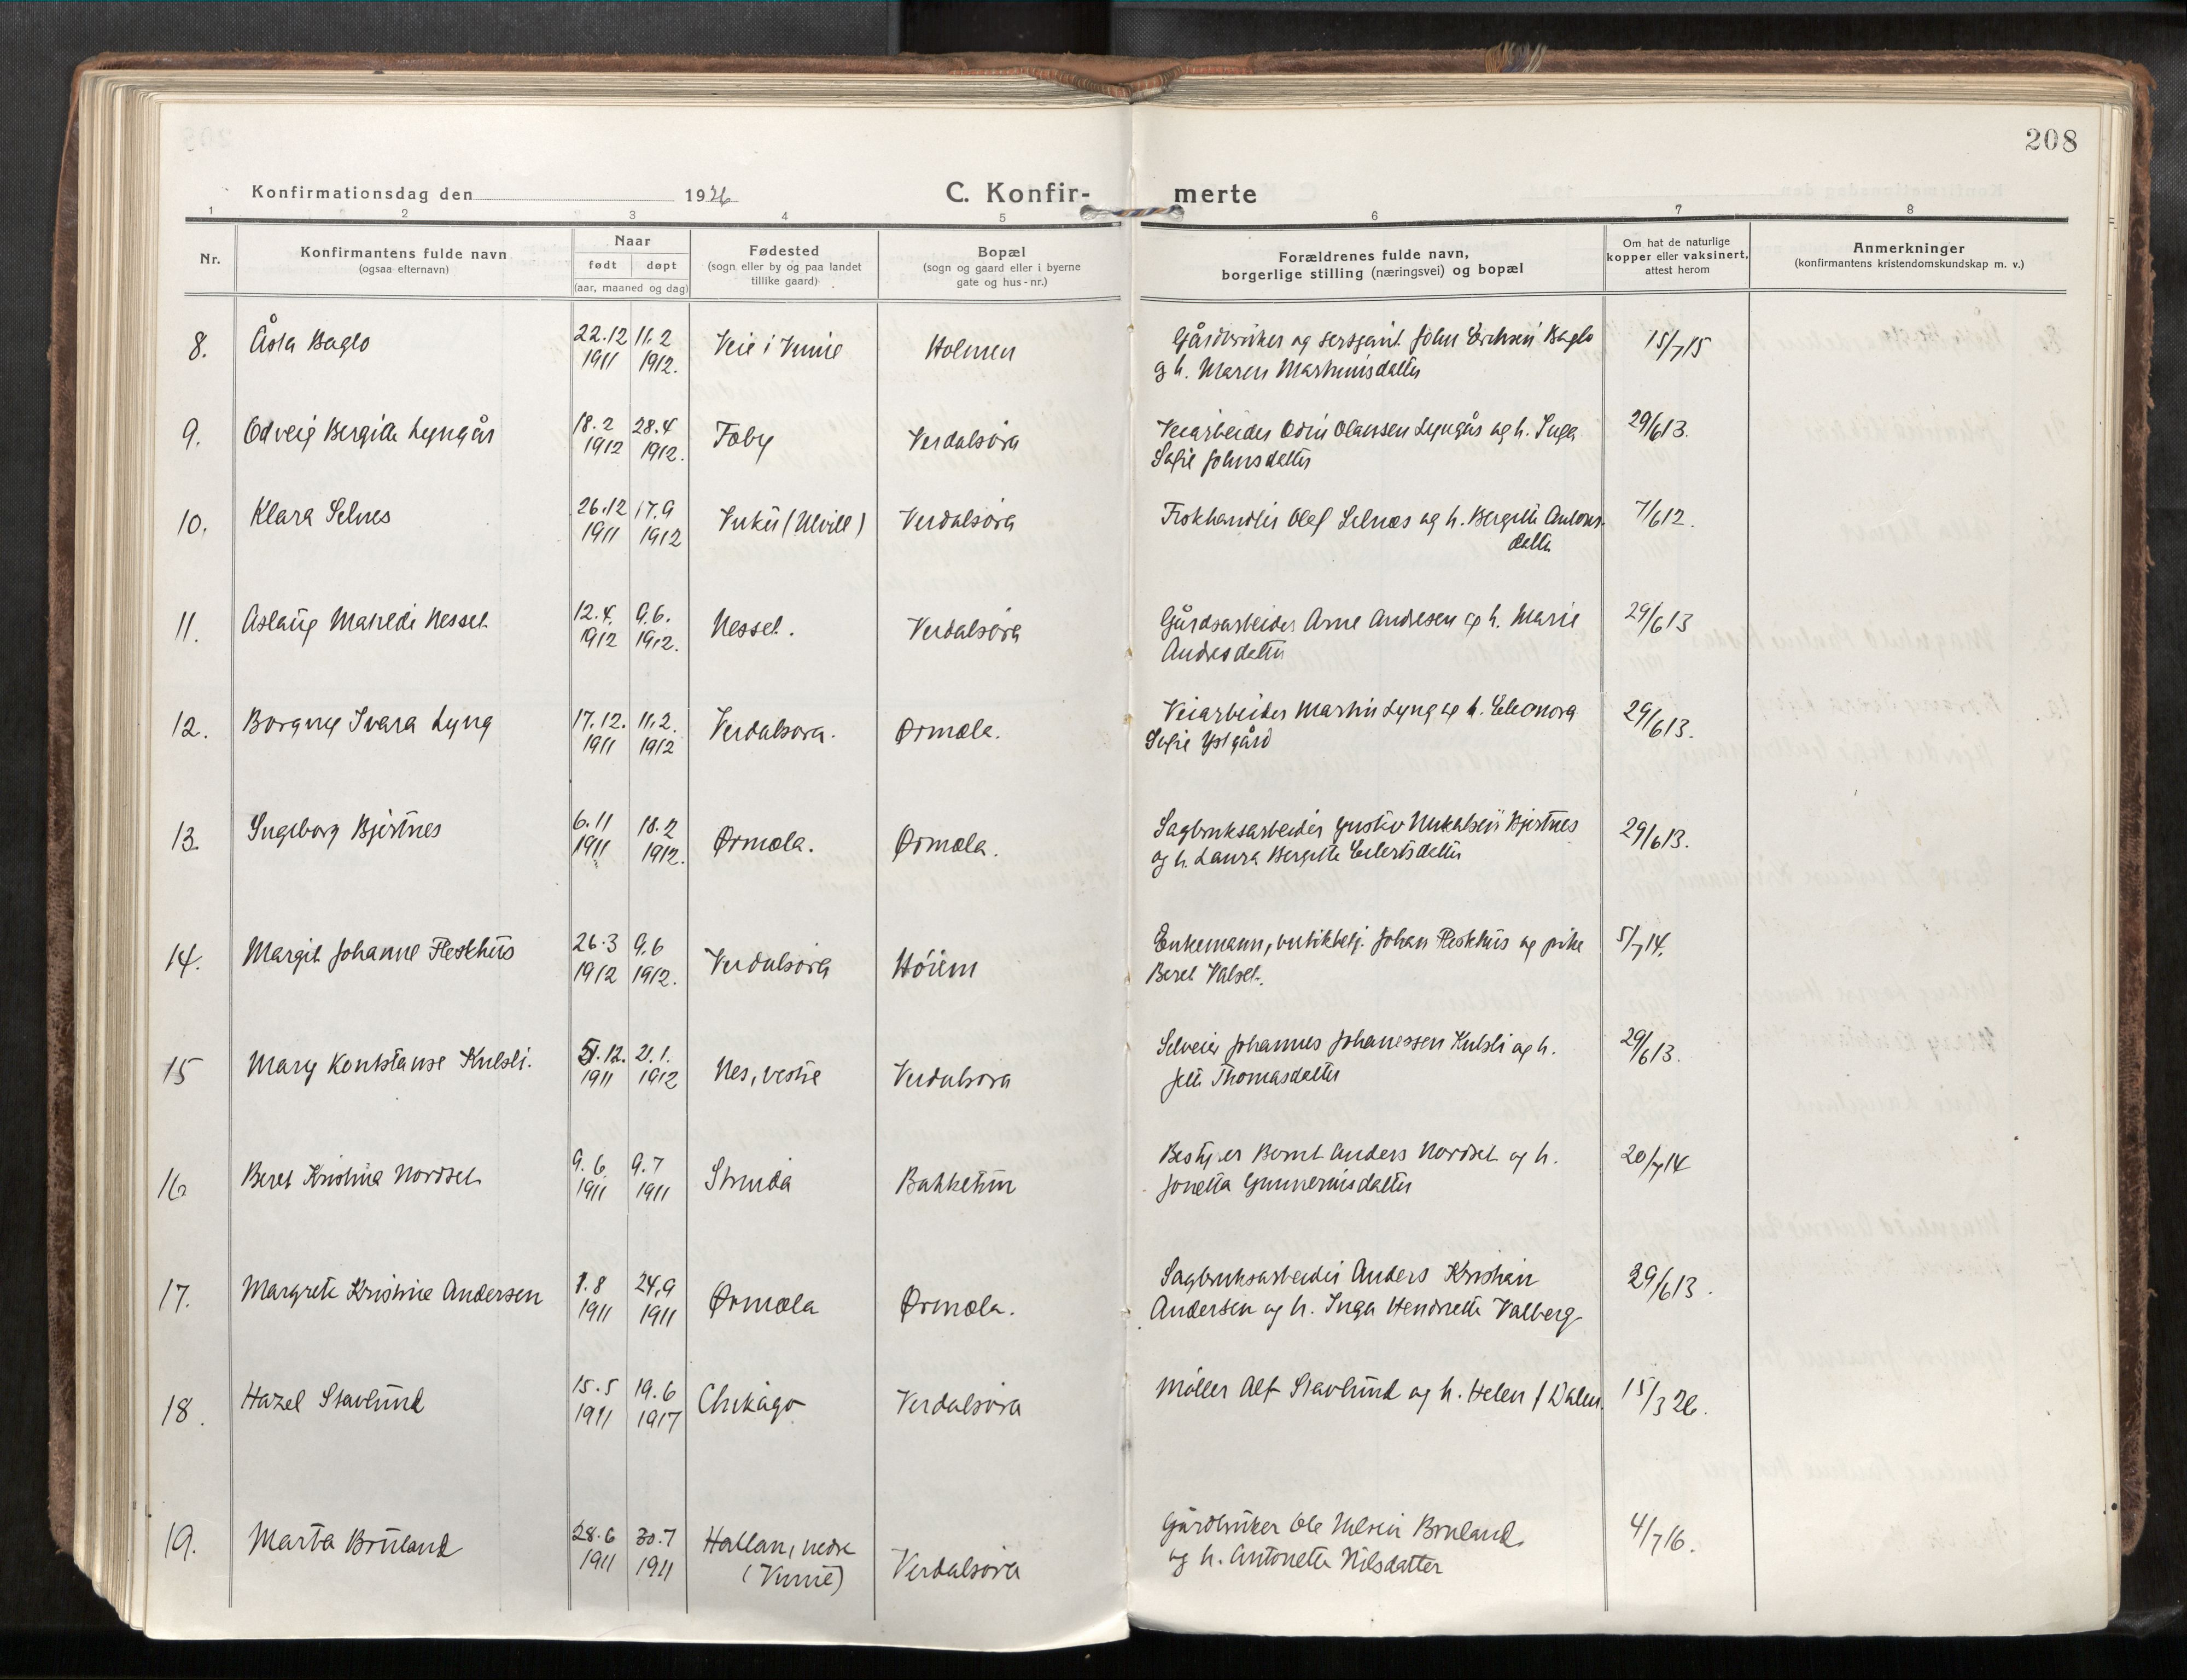 208
Konfirmationsdag den 1926
C. Konfir-merte
1 2 3 4 5 6 7 8
Nr.
Konfirmantens fulde navn
(ogsaa efternavn)
Naar
født døpt
(aar, maaned og dag)
Fødested
(sogn eller by og paa landet
tillike gaard)
Bopæl
(sogn og gaard eller i byerne
gate og hus-nr.)
Forældrenes fulde navn,
borgerlige stilling (næringsvei) og bopæl
Om hat de naturlige
kopper eller vaksinert,
attest herom
Anmerkninger
(konfirmantens kristendomskundskap m. v.)
8. Åsta Baglo 22.12 11.2 Veie i Vinne Holmen Gårdbruker og sersjant John Erichsen Baglo 15/7 15
1911 1912. og h. Maren Martinusdatter
9. Odveig Bergitte Lyngås 18.2 28.4 Foby Verdalsøra Veiarbeider Odin Olausen Lyngås og h. Inga 29/6 13.
1912 1912. Sofie Johnsdatter
10. Klara Selnes 26.12 17.9 Vuku (Ulvill) Verdalsøra Fiskhandler Olef Selnæs og h. Bergitte Antons- 7/6 12.
1911 1912 datter
11. Aslaug Matilde Nesset 12.4. 9.6. Nesset. Verdalsøra Gårdsarbeider Arne Andresen og h. Marie 29/6 13
1912 1912. Andresdatter
12. Borgny Ivara Lyng 17.12. 11.2. Verdalsøra. Ørmæla. Veiarbeider Martin Lyng og h. Eleonora 29/6 13.
1911 1912 Sofie Ystgård
13. Ingeborg Bjertnes 6.11 18.2 Ørmæla. Ørmæla. Sagbruksarbeider Gustav Bjertnes 29/6 13.
1911 1912. og h. Laura Bergitte Eilertsdatter
14. Margit Johanne Fleskhus 26.3 9.6 Verdalsøra Höiem Enkemann, butikbetj. Johan Fleskhus og pike 5/7 14.
1912 1912. Beret Valset.
15 Mary Konstanse Kulsli. 12. 21.1. Nes, vestre Verdalsøra Selveier Johannes Johanessen Kulsli og h. 29/6 13.
1911 1912 Thomasdatter
16 Beret Kristina Nordset 9.6 9.7 Strinda Bakketun Bestyrer Bernt Anders Nordset og h. 20/7 14
1911 1911 Jonetta Gunneriusdatter
17. Margrete Kristine Andersen 1.8 24.9 Ørmæla Ørmæla. Sagbruksarbeider Anders Kristian 29/6 13.
1911 1911 Andersen og h. Inga Hendrette Valberg
18. Hazel Stavlund 15.5 19.6 Chikago Verdalsøra Møller Alf Stavlund og h. Helen f Dalen. 15/3 26.
1911 1917
19. Marta Bruland 28.6 30.7 Hallan, nedre Verdalsøra Gårdbruker Ole Nilsen Bruland 4/7 16.
1911 1911 (Vinne) og h. Antonette Nilsdatter